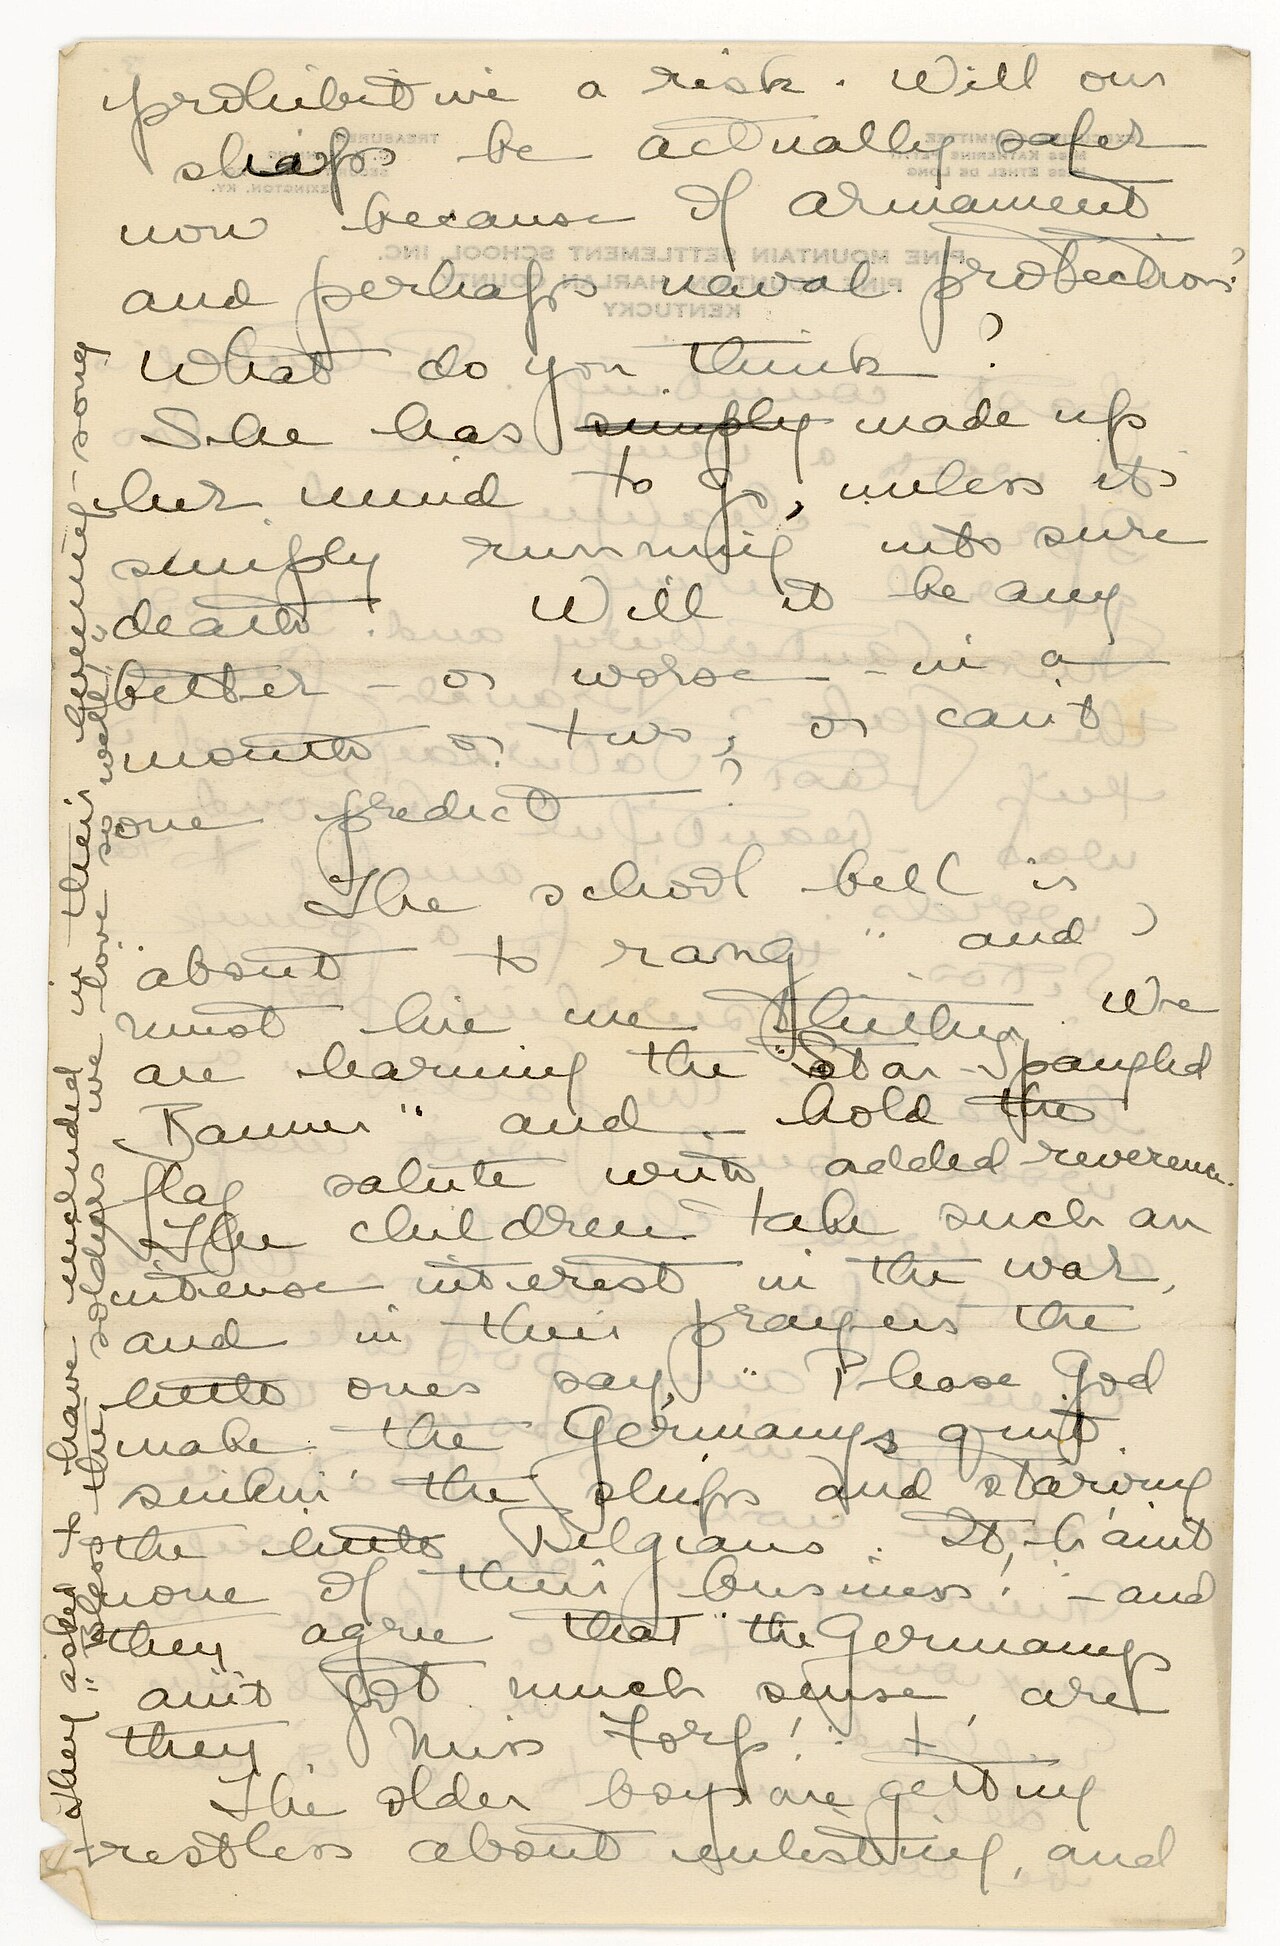 prohibitive a risk. Will our
ships be actually safer
now because of armament
and perhaps naval protection?
What do you think?
She has simply made up
her mind to go, unless it's
simply running into sure
death. Will it be any
better – or worse – in a
month or two, or can't
one predict?
The school bell is
about to "rang" and I
must hie me thither. We
are learning the "Star-Spangled
Banner" and hold the
flag salute with added reverence.
The children take such an
intense interest in the war,
and in their prayers the
little ones say, "Please God
make the Germanys quit
sinkin' the ships and starving
the little Belgians. It h'aint
none of their business!" – and
they agree that "the Germanys
ain't got much sense, are
they, Miss Zorg!" +
The older boys are getting
restless about enlisting, and
+ They asked to have included in their evening song
"Bless the soldiers we love so well"
EXECUTIVE COMMITTEE
MISS KATHERINE PETTIT
MISS ETHEL DE LONG
TREASURER
LEXINGTON, KY.
PINE MOUNTAIN SETTLEMENT SCHOOL, INC.
PINE MOUNTAIN, HARLAN COUNTY
KENTUCKY